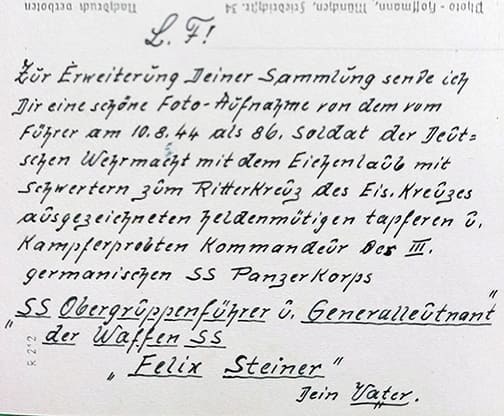 Photo-Hoffmann, München, Friedrichstr. 34 Nachdruck verboten
L. F!
Zur Erweiterung Deiner Sammlung sende ich
Dir eine schöne Foto-Aufnahme von dem vom
Führer am 10.8.44 als 86. Soldat der Deut=
schen Wehrmacht mit dem Eichenlaub mit
Schwertern zum Ritterkreuz des Eis. Kreuzes
ausgezeichneten heldenmütigen tapferen u.
Kampferprobten Kommandeur des III.
germanischen SS PanzerKorps
„SS Obergruppenführer u. Generalleutnant"
der Waffen SS
„Felix Steiner"
Dein Vater.
R 212